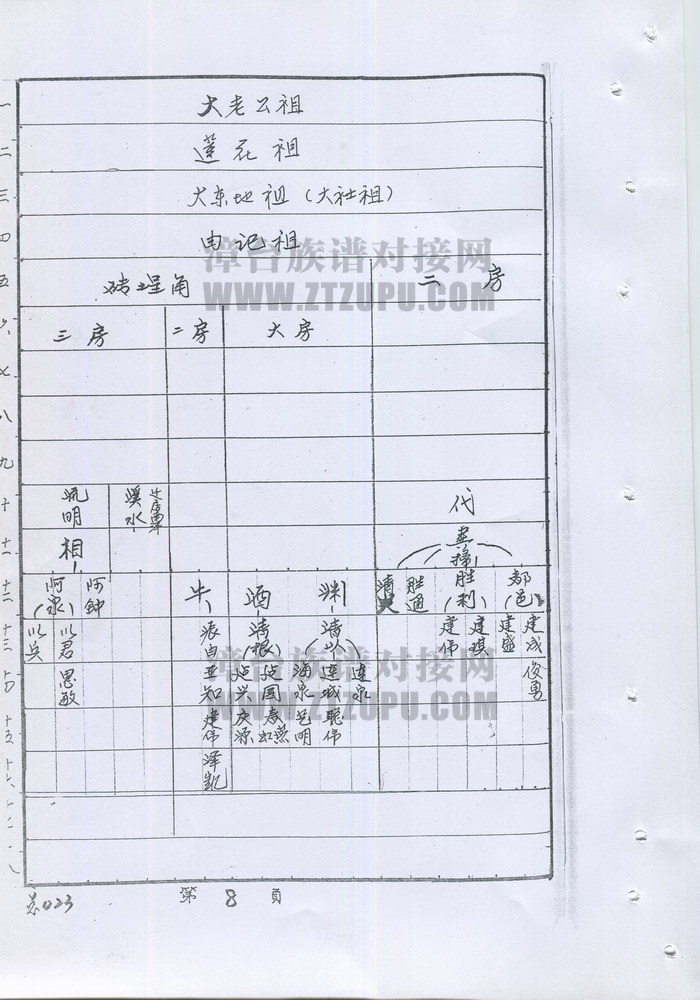 大老公祖
莲花祖
大东地祖（大社祖）
由记祖
漳台族谱对接网
WWW.ZTZUPU.COM
砖埕角 二房
三房 二房 大房
一
二
三
四
五
六
七
八
九
十
十一
十二
十三
十四
十五
十六
十七
十八
明 溪水 代
相
阿泉 阿钟 牛 酒 渊 清 胜通 胜利 都(邑)
以兵 以君 振由 清(振) 清以 建伟 建琪 建盛 建成
思敏 亚知 兴 国 海泉 连城 连泉 俊勇
建伟 庆源 艺明 聪伟
泽凯
漳台族谱对接网
WWW.ZTZUPU.COM
023 第8页